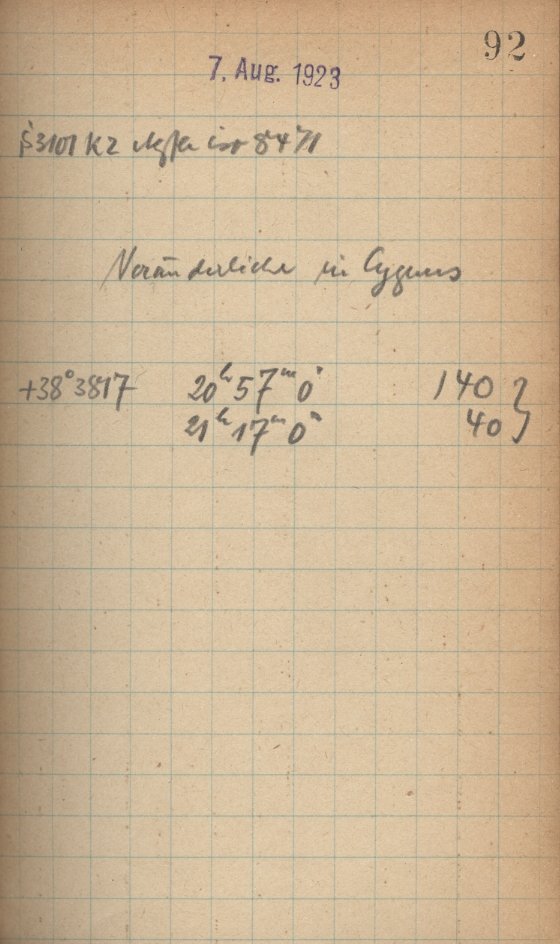 92
7. Aug. 1923
β3101 K2 ist 8471
Veränderliche in Cygnus
+38°3817 20ʰ57ᵐ0ˢ 140 }
21ʰ17ᵐ0ˢ 40 }